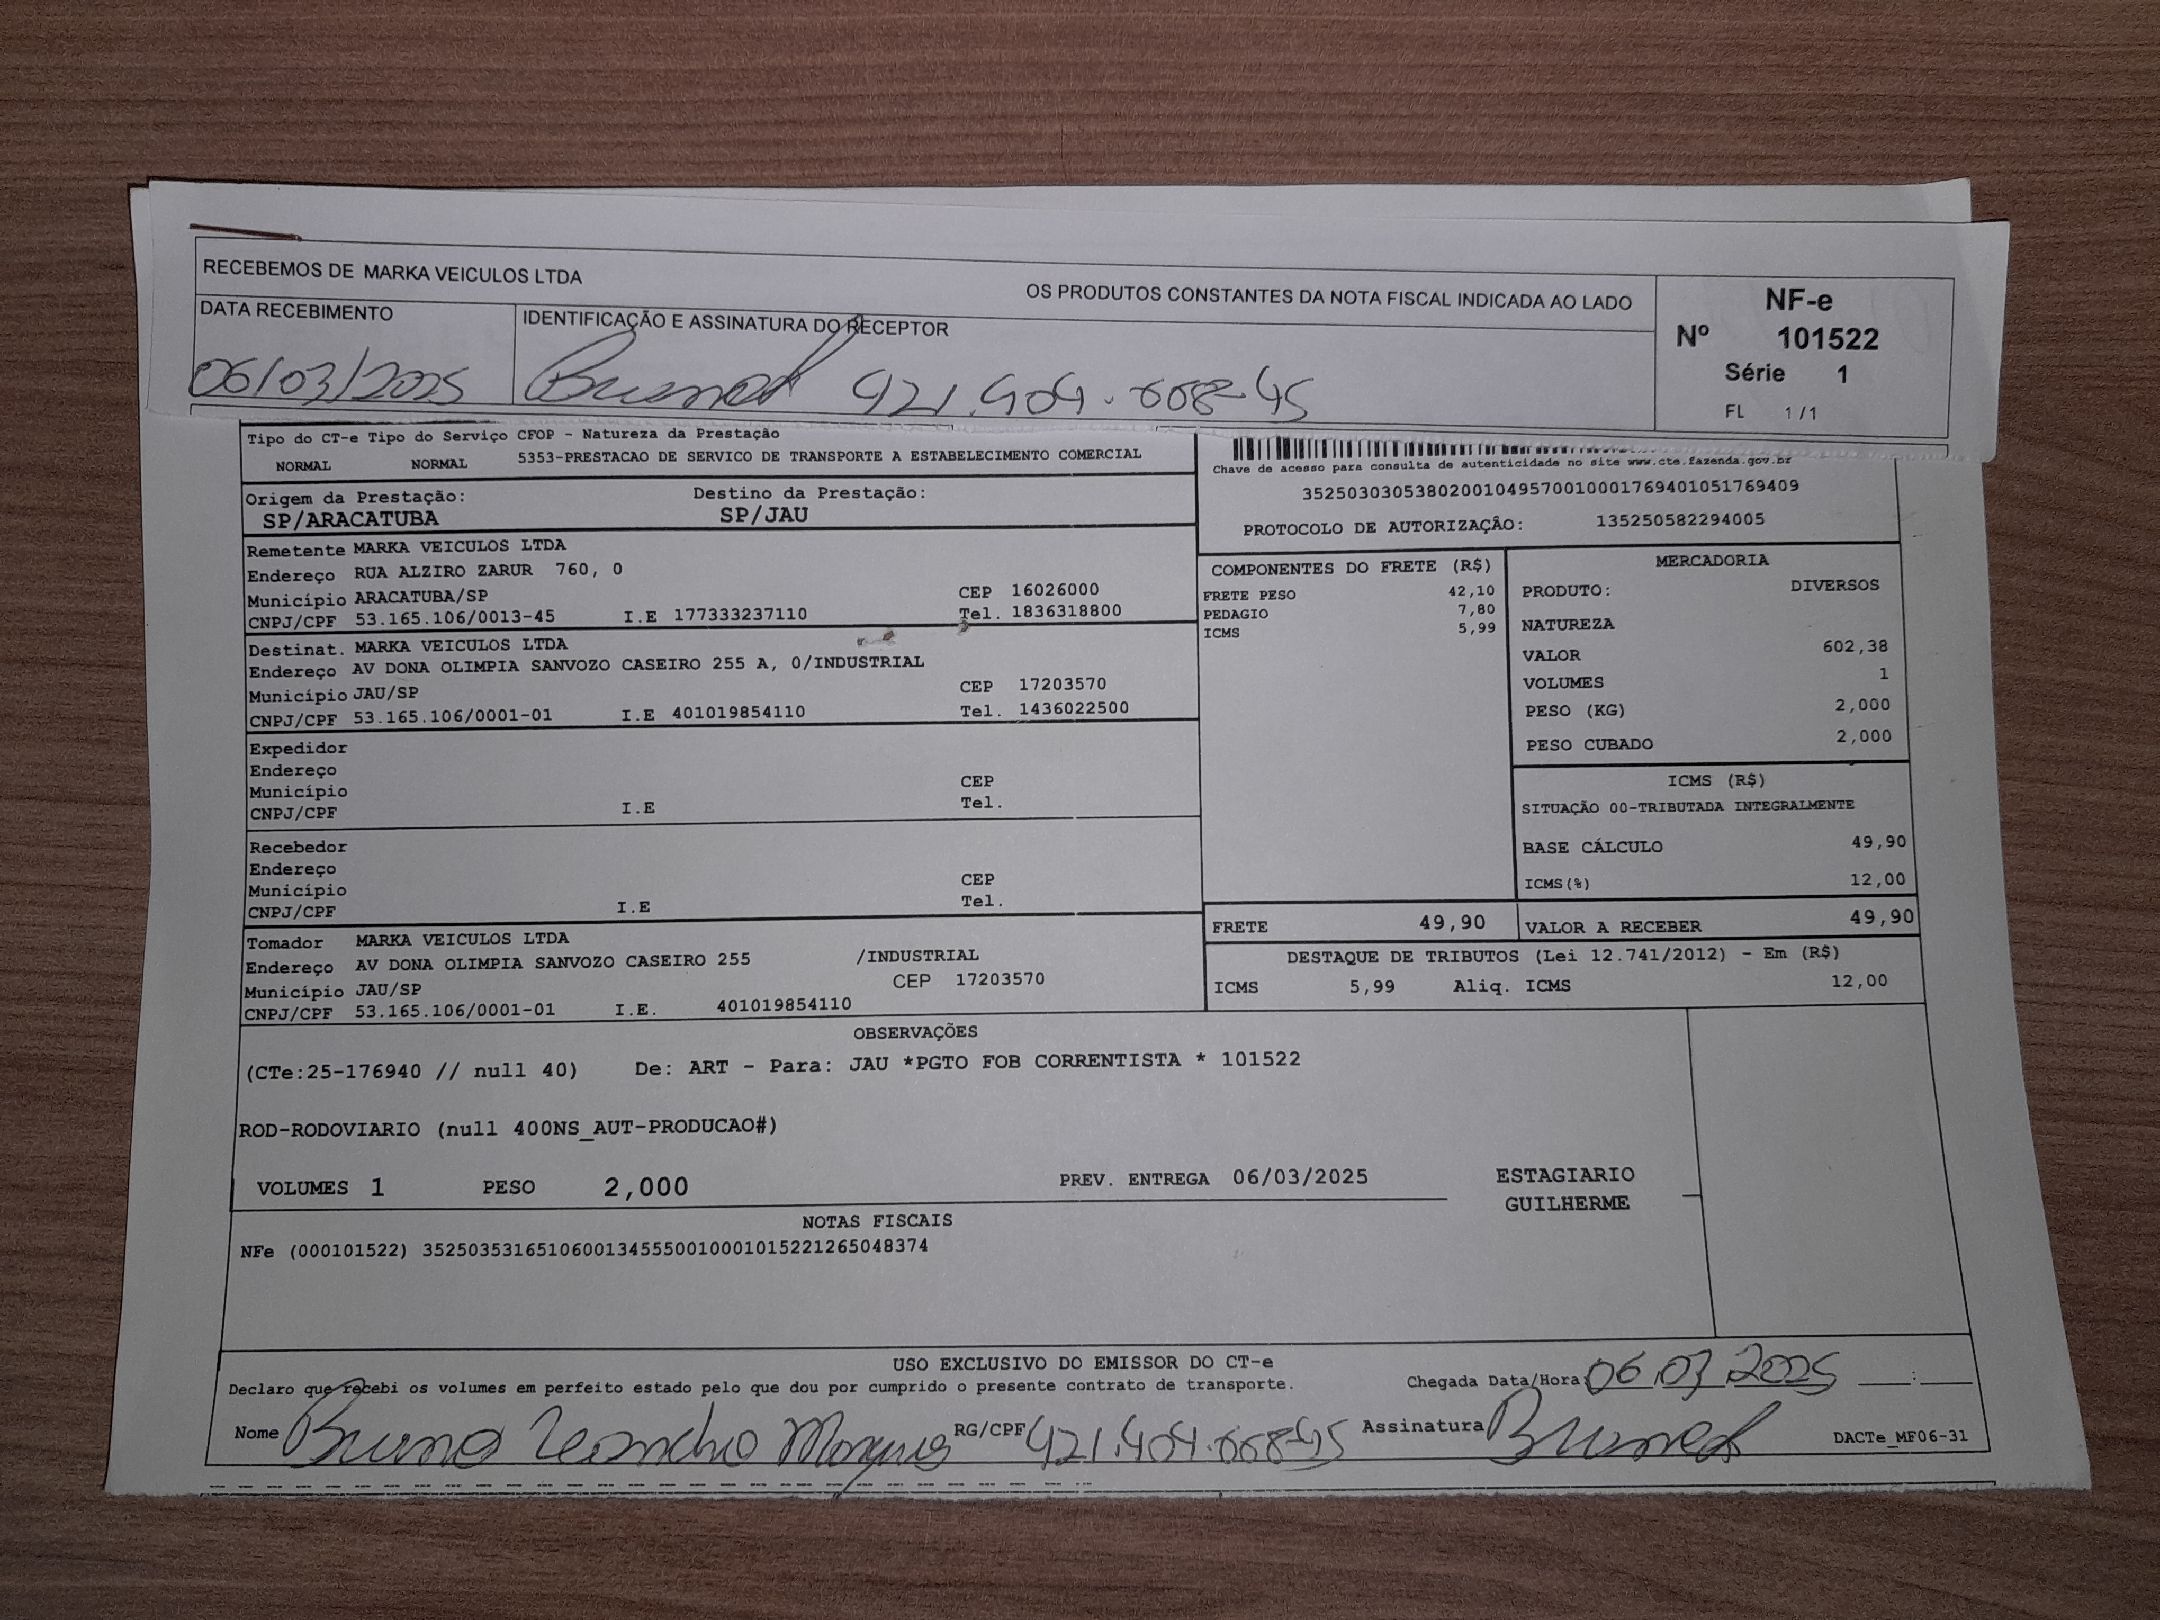 RECEBEMOS DE MARKA VEICULOS LTDA
OS PRODUTOS CONSTANTES DA NOTA FISCAL INDICADA AO LADO
DATA RECEBIMENTO
IDENTIFICAÇÃO E ASSINATURA DO RECEPTOR
06/03/2025
NF-e
Nº 101522
Série 1
FL 1/1
Tipo do CT-e Tipo do Serviço CFOP - Natureza da Prestação
NORMAL NORMAL 5353-PRESTACAO DE SERVICO DE TRANSPORTE A ESTABELECIMENTO COMERCIAL
Origem da Prestação: Destino da Prestação:
SP/ARACATUBA SP/JAU
Chave de acesso para consulta de autenticidade no site www.cte.fazenda.gov.br
35250303053802001049570010001769401051769409
PROTOCOLO DE AUTORIZAÇÃO: 135250582294005
Remetente MARKA VEICULOS LTDA
Endereço RUA ALZIRO ZARUR 760, 0
Município ARACATUBA/SP CEP 16026000
CNPJ/CPF 53.165.106/0013-45 I.E 177333237110 Tel. 1836318800
Destinat. MARKA VEICULOS LTDA
Endereço AV DONA OLIMPIA SANVOZO CASEIRO 255 A, 0/INDUSTRIAL
Município JAU/SP CEP 17203570
CNPJ/CPF 53.165.106/0001-01 I.E 401019854110 Tel. 1436022500
Expedidor
Endereço
Município CEP
CNPJ/CPF I.E Tel.
Recebedor
Endereço
Município CEP
CNPJ/CPF I.E Tel.
Tomador MARKA VEICULOS LTDA
Endereço AV DONA OLIMPIA SANVOZO CASEIRO 255 /INDUSTRIAL
Município JAU/SP CEP 17203570
CNPJ/CPF 53.165.106/0001-01 I.E. 401019854110
COMPONENTES DO FRETE (R$)
FRETE PESO 42,10
PEDAGIO 7,80
ICMS 5,99
MERCADORIA
PRODUTO: DIVERSOS
NATUREZA
VALOR 602,38
VOLUMES 1
PESO (KG) 2,000
PESO CUBADO 2,000
ICMS (R$)
SITUAÇÃO 00-TRIBUTADA INTEGRALMENTE
BASE CÁLCULO 49,90
ICMS(%) 12,00
FRETE 49,90 VALOR A RECEBER 49,90
DESTAQUE DE TRIBUTOS (Lei 12.741/2012) - Em (R$)
ICMS 5,99 Aliq. ICMS 12,00
OBSERVAÇÕES
(CTe:25-176940 // null 40) De: ART - Para: JAU *PGTO FOB CORRENTISTA * 101522
ROD-RODOVIARIO (null 400NS_AUT-PRODUCAO#)
VOLUMES 1 PESO 2,000 PREV. ENTREGA 06/03/2025 ESTAGIARIO
GUILHERME
NOTAS FISCAIS
NFe (000101522) 35250353165106001345550010001015221265048374
USO EXCLUSIVO DO EMISSOR DO CT-e
Declaro que recebi os volumes em perfeito estado pelo que dou por cumprido o presente contrato de transporte. Chegada Data/Hora: 06.03.2025 ___:___
Nome Bruno Leandro RG/CPF Assinatura DACTe_MF06-31